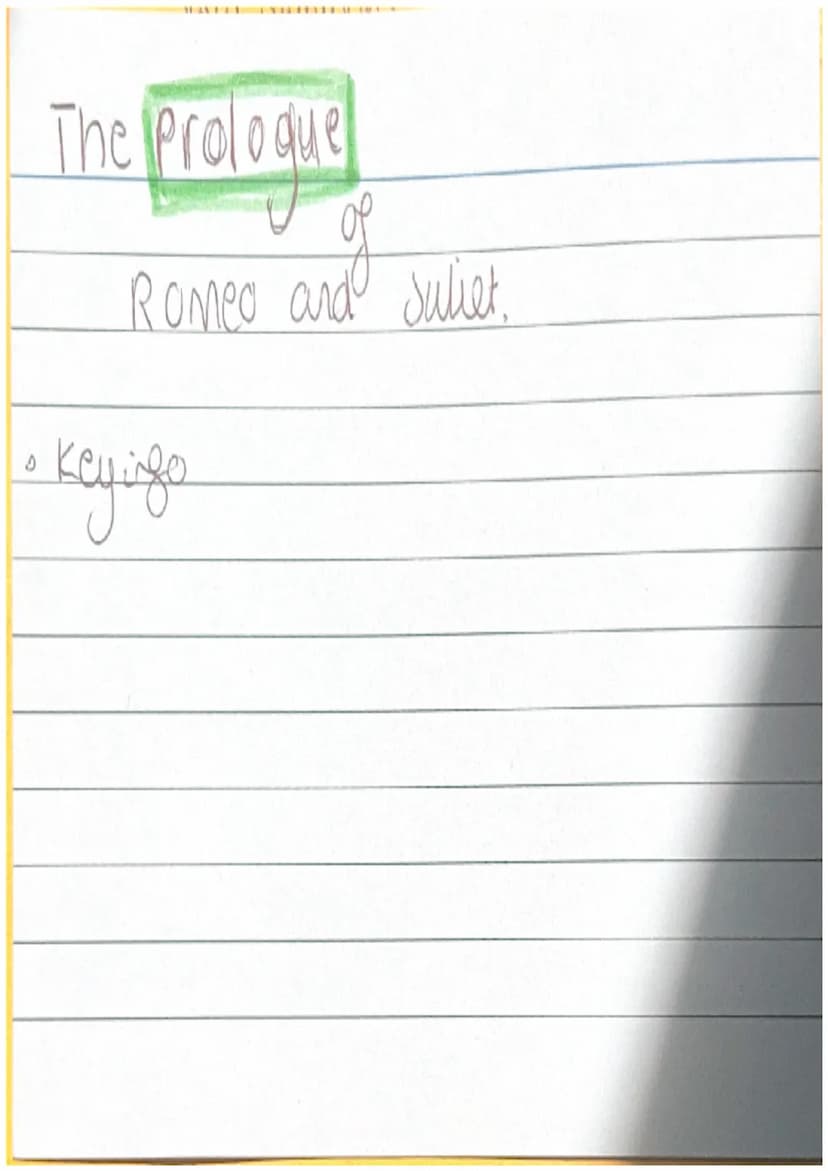 The prologue
of
Romeo and Juliet.
• Key info